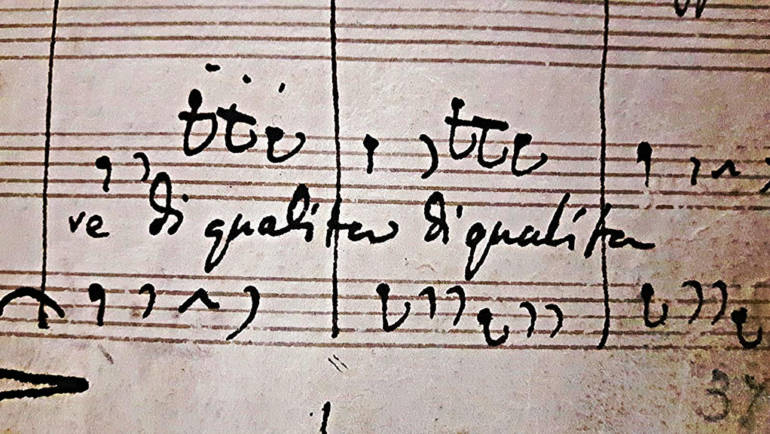 ve di qualità di qualità
37